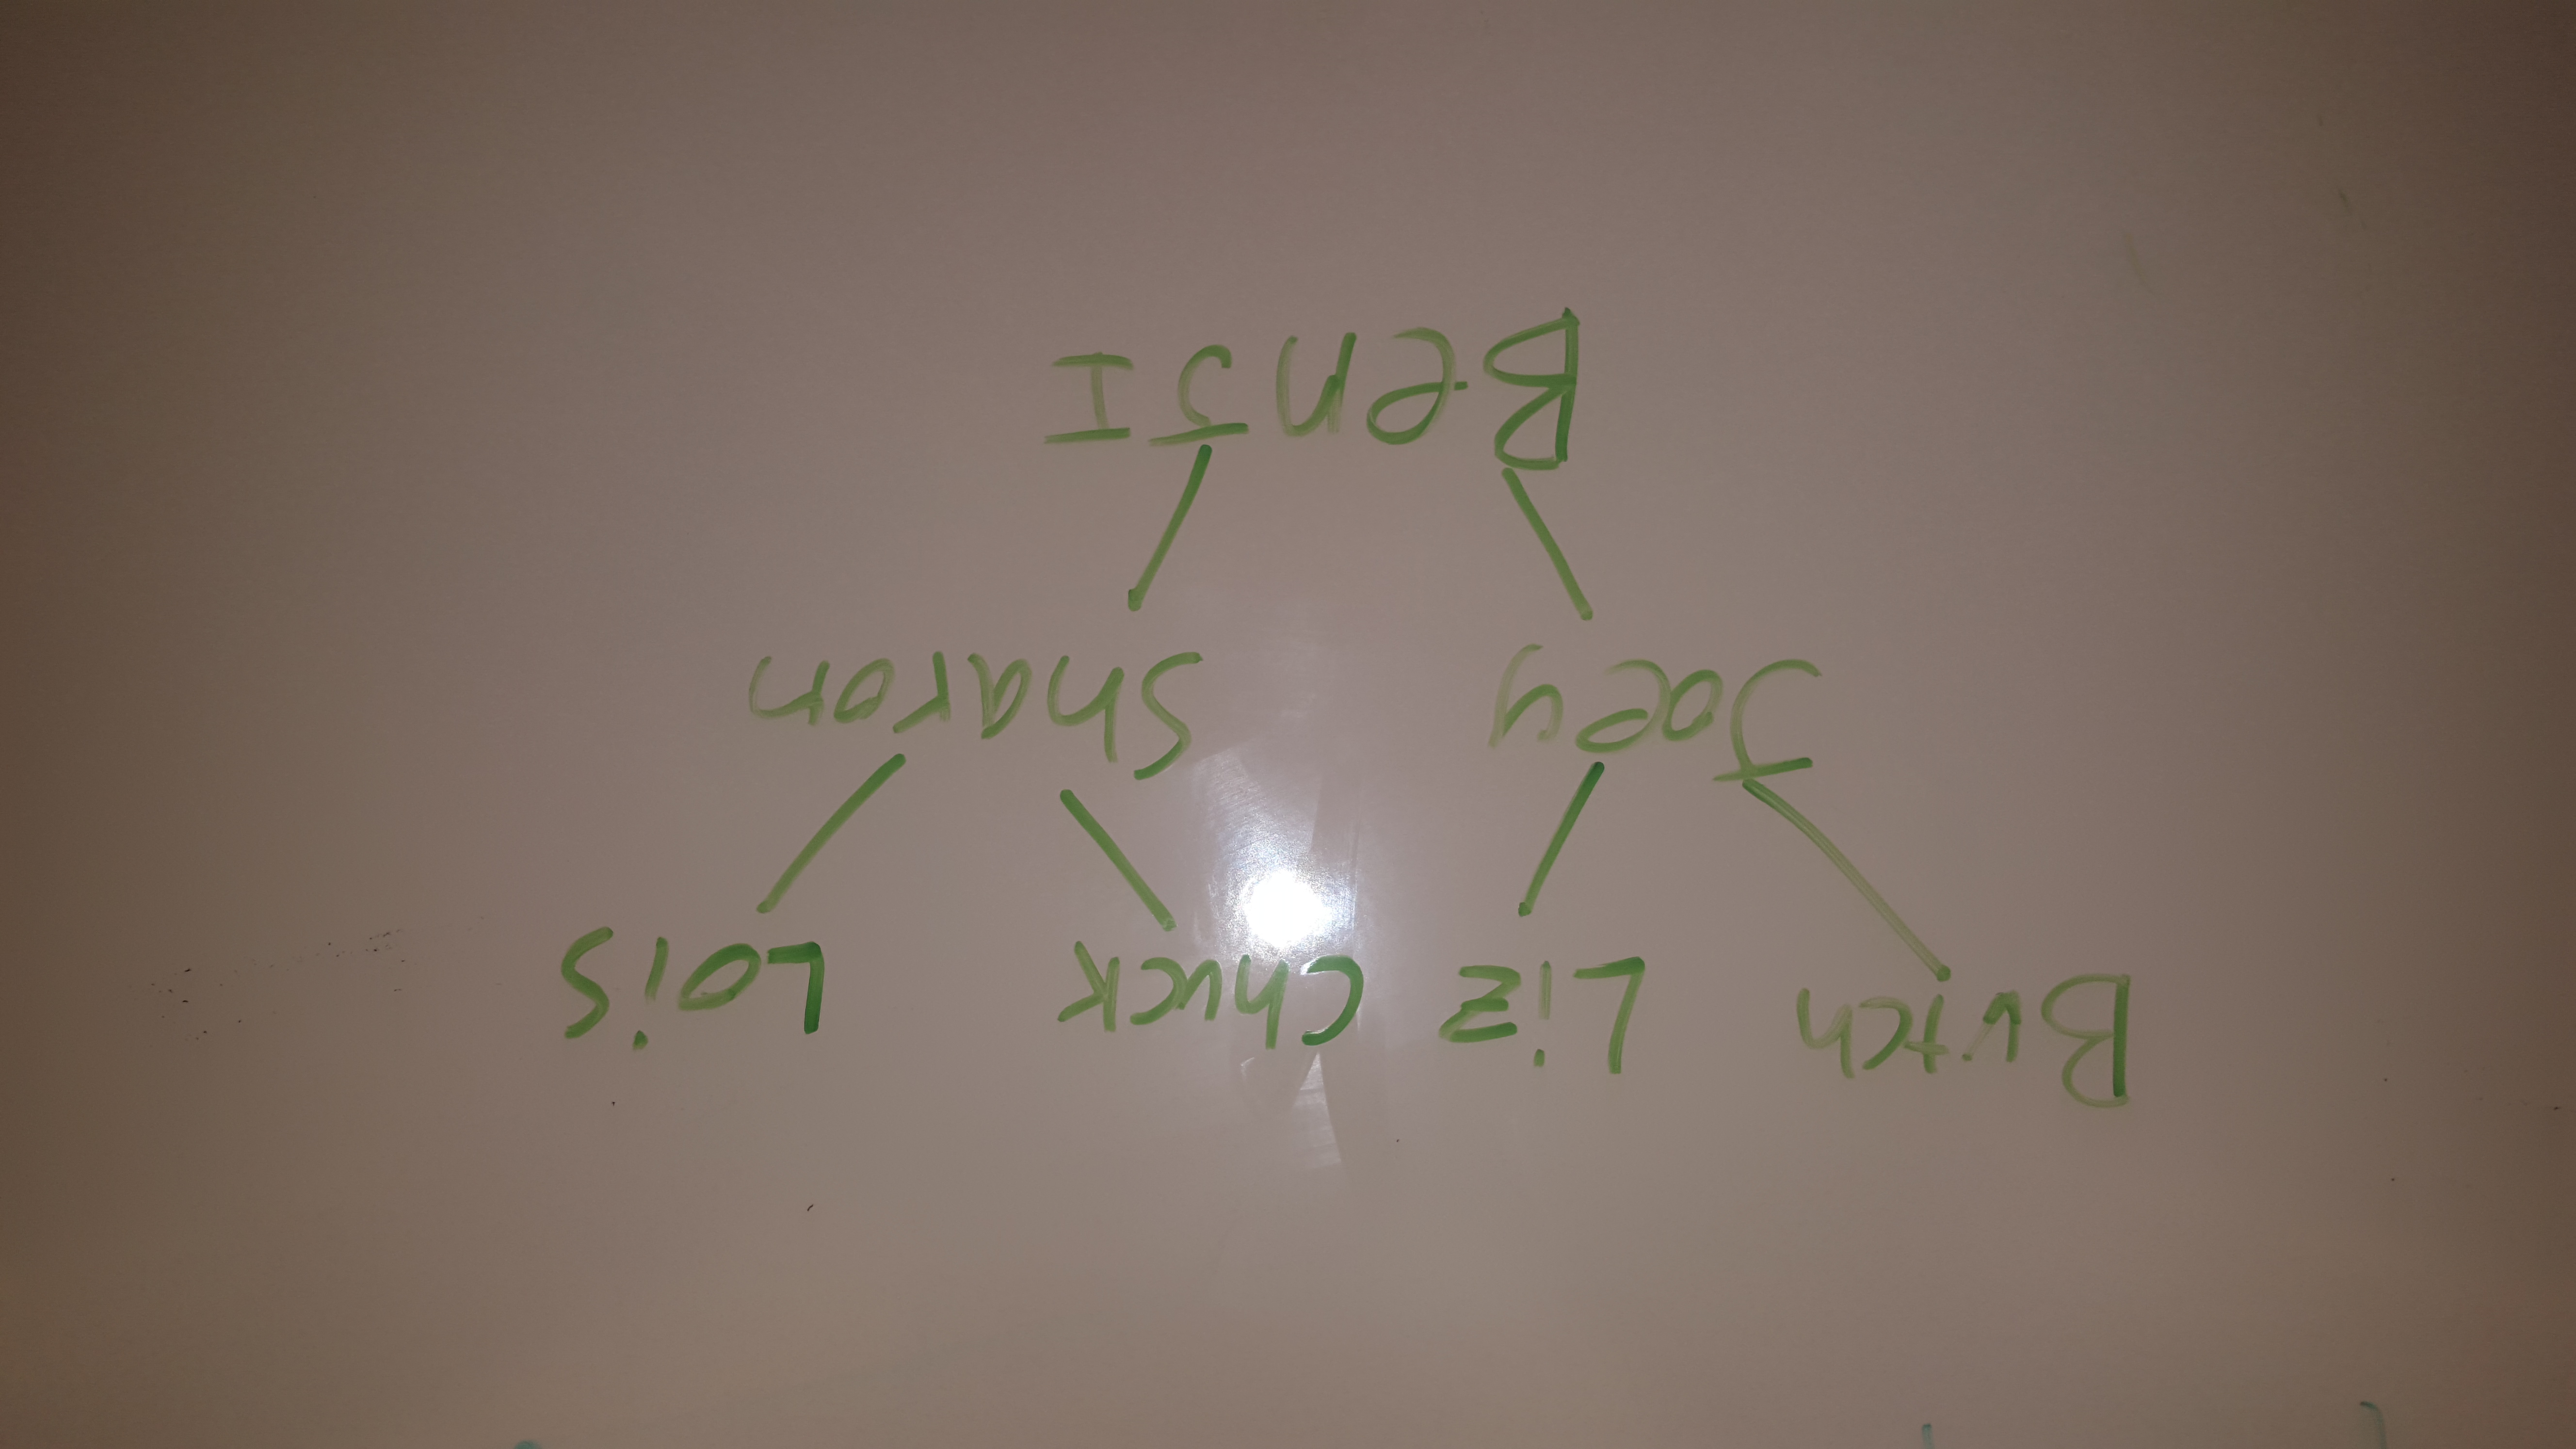 Butch Liz Chuck Lois
Joey Sharon
BenJI